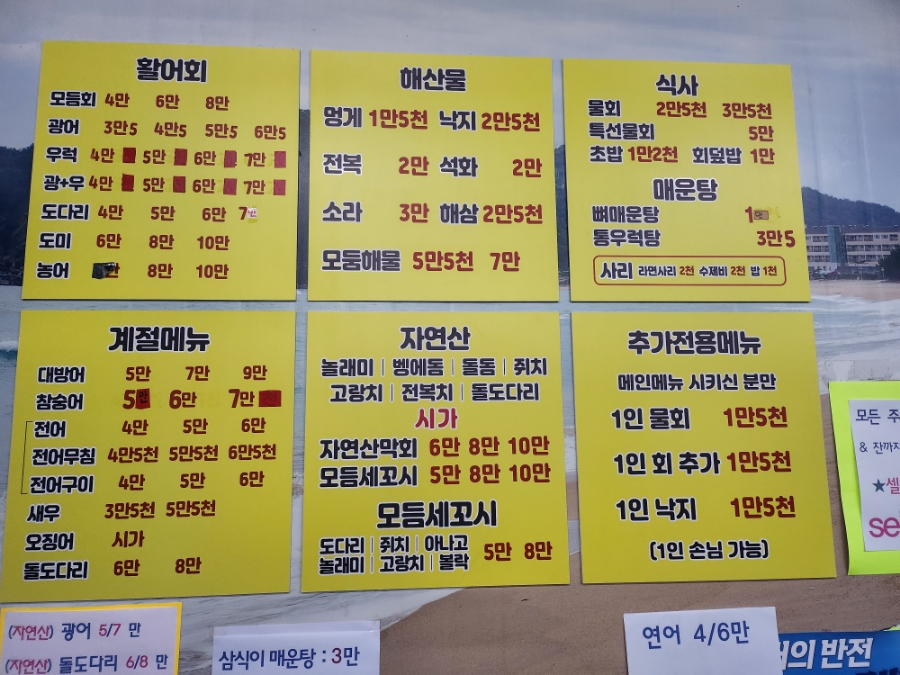 활어회
모듬회 4만 6만 8만
광어 3만5 4만5 5만5 6만5
우럭 4만 5만 6만 7만
광+우 4만 5만 6만 7만
도다리 4만 5만 6만 7
도미 6만 8만 10만
농어 8만 10만
해산물
멍게 1만5천 낙지 2만5천
전복 2만 석화 2만
소라 3만 해삼 2만5천
모둠해물 5만5천 7만
식사
물회 2만5천 3만5천
특선물회 5만
초밥 1만2천 회덮밥 1만
매운탕
뼈매운탕 1
통우럭탕 3만5
사리 라면사리 2천 수제비 2천 밥 1천
계절메뉴
대방어 5만 7만 9만
참숭어 5 6만 7만
전어 4만 5만 6만
전어무침 4만5천 5만5천 6만5천
전어구이 4만 5만 6만
새우 3만5천 5만5천
오징어 시가
돌도다리 6만 8만
자연산
놀래미 | 벵에돔 | 돌돔 | 쥐치
고랑치 | 전복치 | 돌도다리
시가
자연산막회 6만 8만 10만
모듬세꼬시 5만 8만 10만
모듬세꼬시
도다리 | 쥐치 | 아나고
놀래미 | 고랑치 | 볼락
5만 8만
추가전용메뉴
메인메뉴 시키신 분만
1인 물회 1만5천
1인 회 추가 1만5천
1인 낙지 1만5천
(1인 손님 가능)
모든 주
& 잔까지
★셀
se
(자연산) 광어 5/7 만
(자연산) 돌도다리 6/8 만
삼식이 매운탕 : 3만
연어 4/6만
의 반전